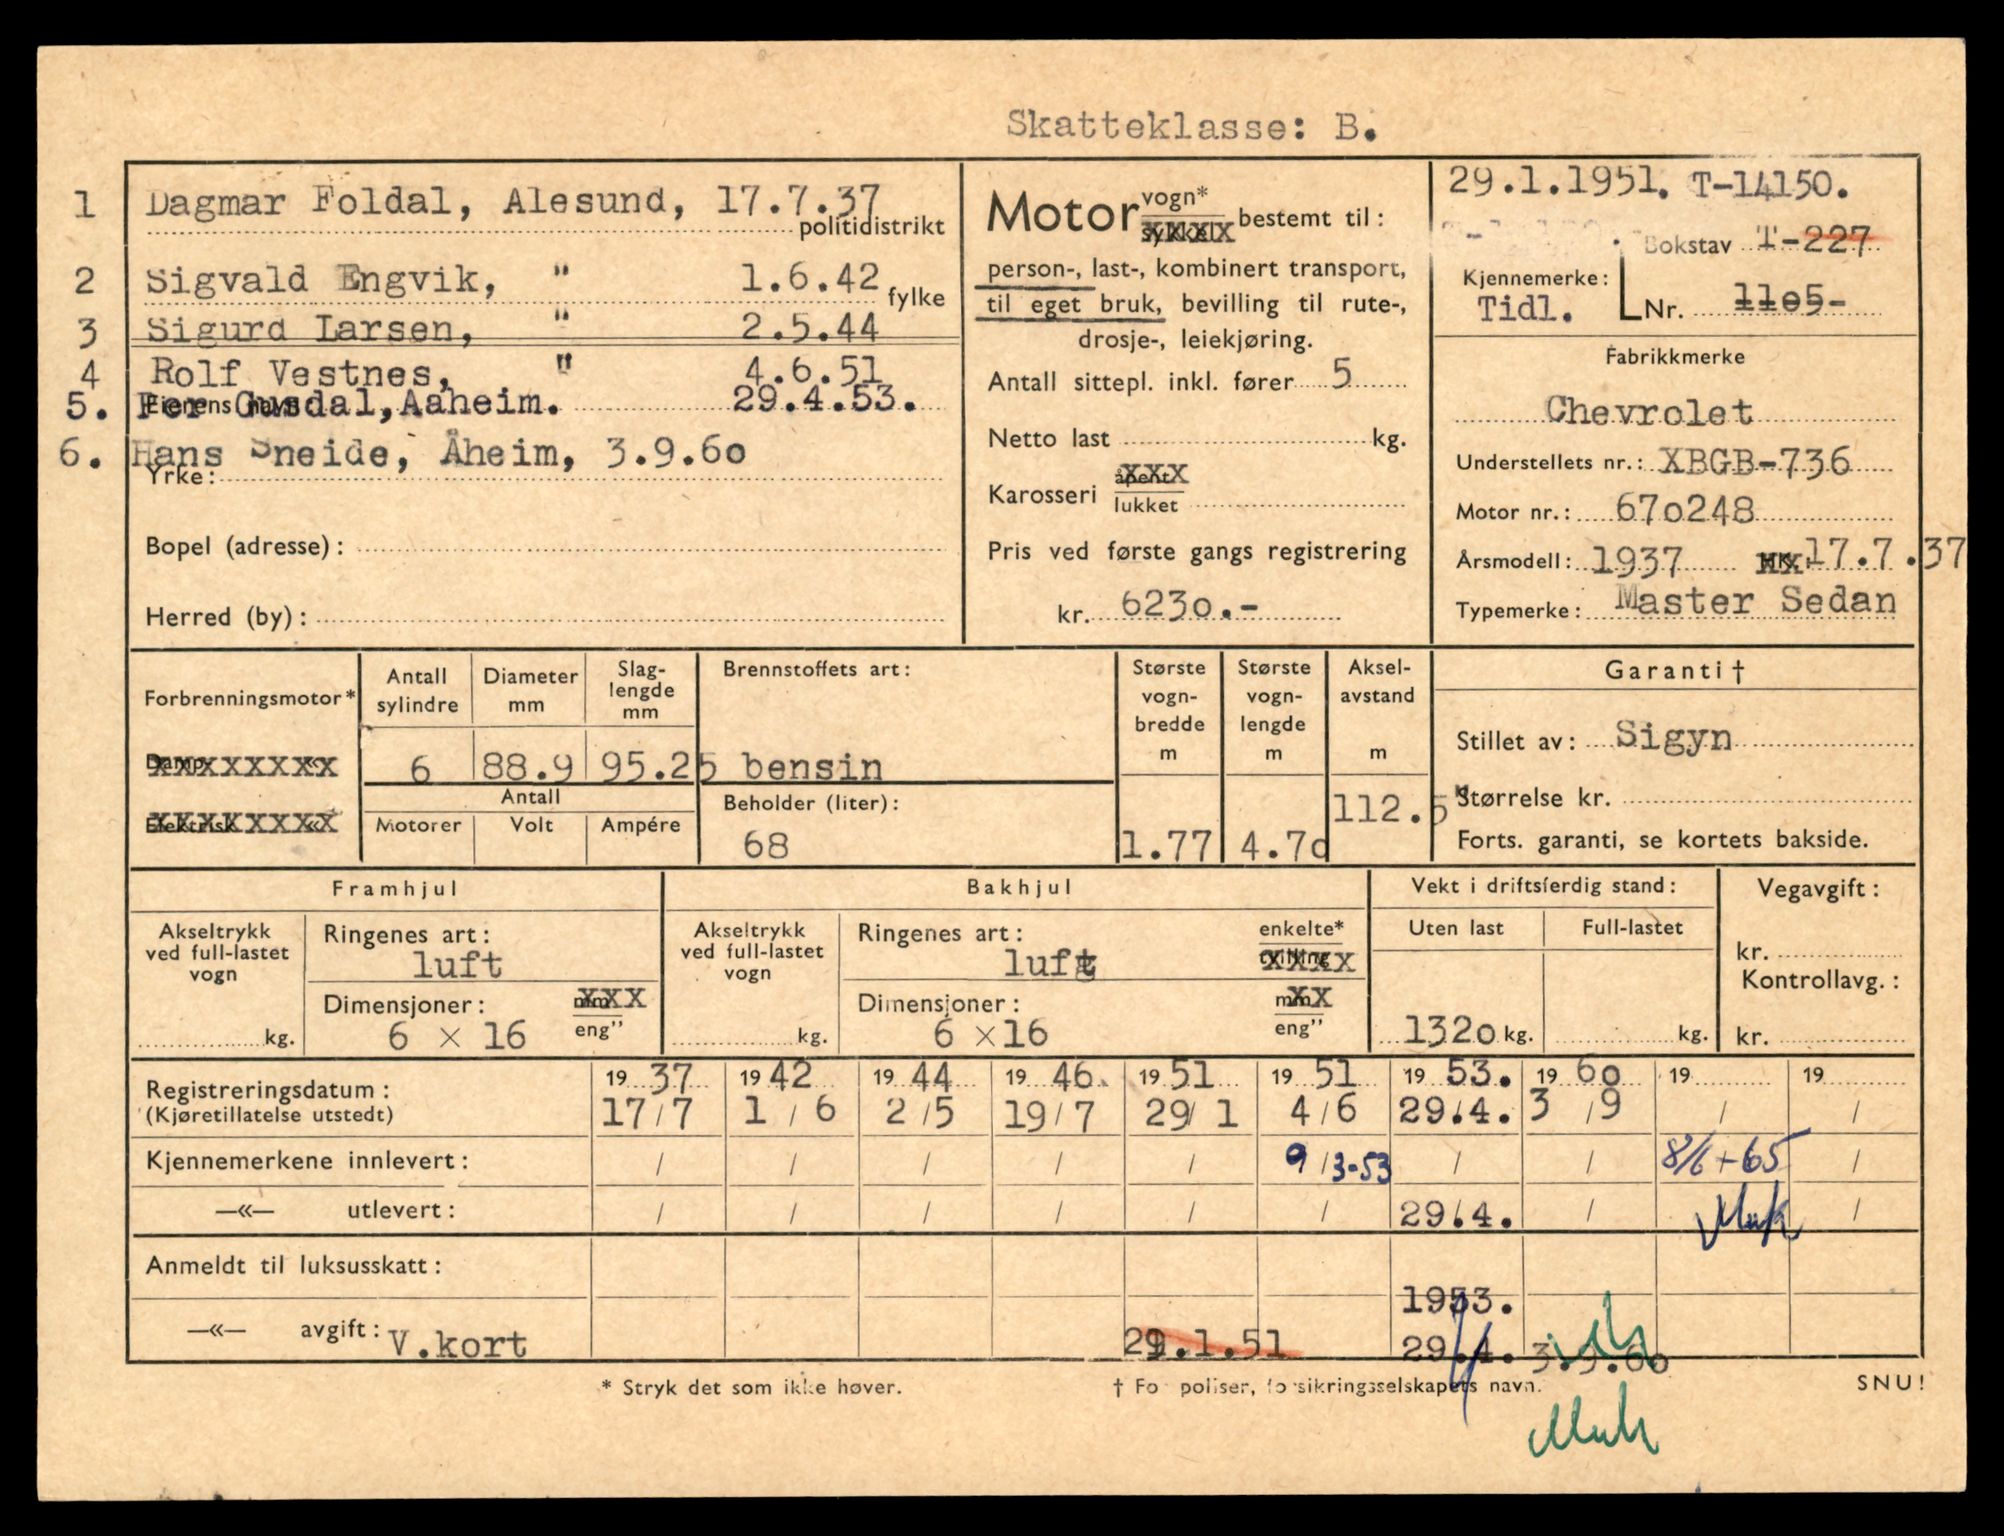 Skatteklasse: B.
1 Dagmar Foldal, Alesund, 17.7.37
politidistrikt
2 Sigvald Engvik, " 1.6.42
fylke
3 Sigurd Larsen, " 2.5.44
4 Rolf Vestnes, " 4.6.51
5. Per Gusdal, Aaheim. 29.4.53.
Eierens navn
6. Hans Sneide, Åheim, 3.9.60
Yrke:
Bopel (adresse):
Herred (by):
Motor vogn* bestemt til:
sykkel
person-, last-, kombinert transport,
til eget bruk, bevilling til rute-,
drosje-, leiekjøring.
Antall sittepl. inkl. fører 5
Netto last kg.
Karosseri åpent
lukket
Pris ved første gangs registrering
kr. 6230.-
29.1.1951. T-14150.
Bokstav T-227
Kjennemerke:
Tidl. Nr. 1105-
Fabrikkmerke
Chevrolet
Understellets nr.: XBGB-736
Motor nr.: 670248
Årsmodell: 1937 17.7.37
Typemerke: Master Sedan
Forbrenningsmotor*
Damp
Elektrisk «
Antall sylindre
6
Diameter mm
88.9
Slag-lengde mm
95.25
Antall
Motorer Volt Ampére
Brennstoffets art:
bensin
Beholder (liter):
68
Største vogn-bredde m
1.77
Største vogn-lengde m
4.70
Aksel-avstand m
112.5"
Garanti †
Stillet av: Sigyn
Størrelse kr.
Forts. garanti, se kortets bakside.
Framhjul
Akseltrykk ved full-lastet vogn
kg.
Ringenes art:
luft
Dimensjoner: mm
6 x 16 eng"
Bakhjul
Akseltrykk ved full-lastet vogn
kg.
Ringenes art: enkelte*
luft tvilling
Dimensjoner: mm
6 x 16 eng"
Vekt i driftsferdig stand:
Uten last Full-lastet
1320 kg. kg.
Vegavgift:
kr.
Kontrollavg.:
kr.
Registreringsdatum: 19 37 19 42 19 44 19 46. 19 51 19 51 19 53. 19 60 19 19
(Kjøretillatelse utstedt) 17/7 1/6 2/5 19/7 29/1 4/6 29/4. 3/9 / /
Kjennemerkene innlevert: / / / / / 9/3-53 / / 8/6-65 /
—«— utlevert: / / / / / / 29/4. / /
Anmeldt til luksusskatt:
1953.
—«— avgift: V.kort 29.1.51 29.4. 3.9.60
* Stryk det som ikke høver. † For poliser, forsikringsselskapets navn. SNU!